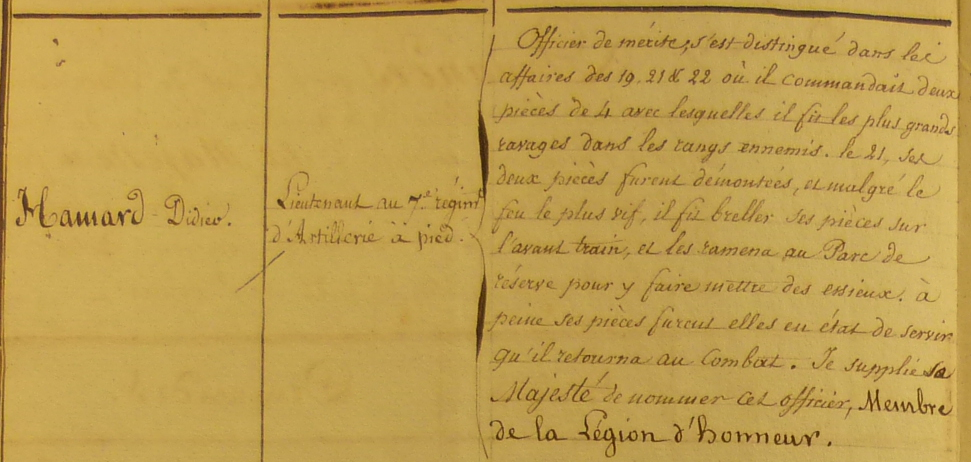 Hamard Didier.
Lieutenant au 7.e régimt
d'Artillerie à pied.
Officier de mérite, s'est distingué dans les
affaires des 19, 21 & 22 où il commandait deux
pièces de 4 avec lesquelles il fit les plus grands
ravages dans les rangs ennemis. le 21, ses
deux pièces furent démontées, et malgré le
feu le plus vif, il fit breller ses pièces sur
l'avant train, et les ramena au Parc de
réserve pour y faire mettre des essieux. à
peine ses pièces furent elles en état de servir
qu'il retourna au Combat. Je supplie sa
Majesté de nommer cet officier, Membre
de la Légion d'honneur.